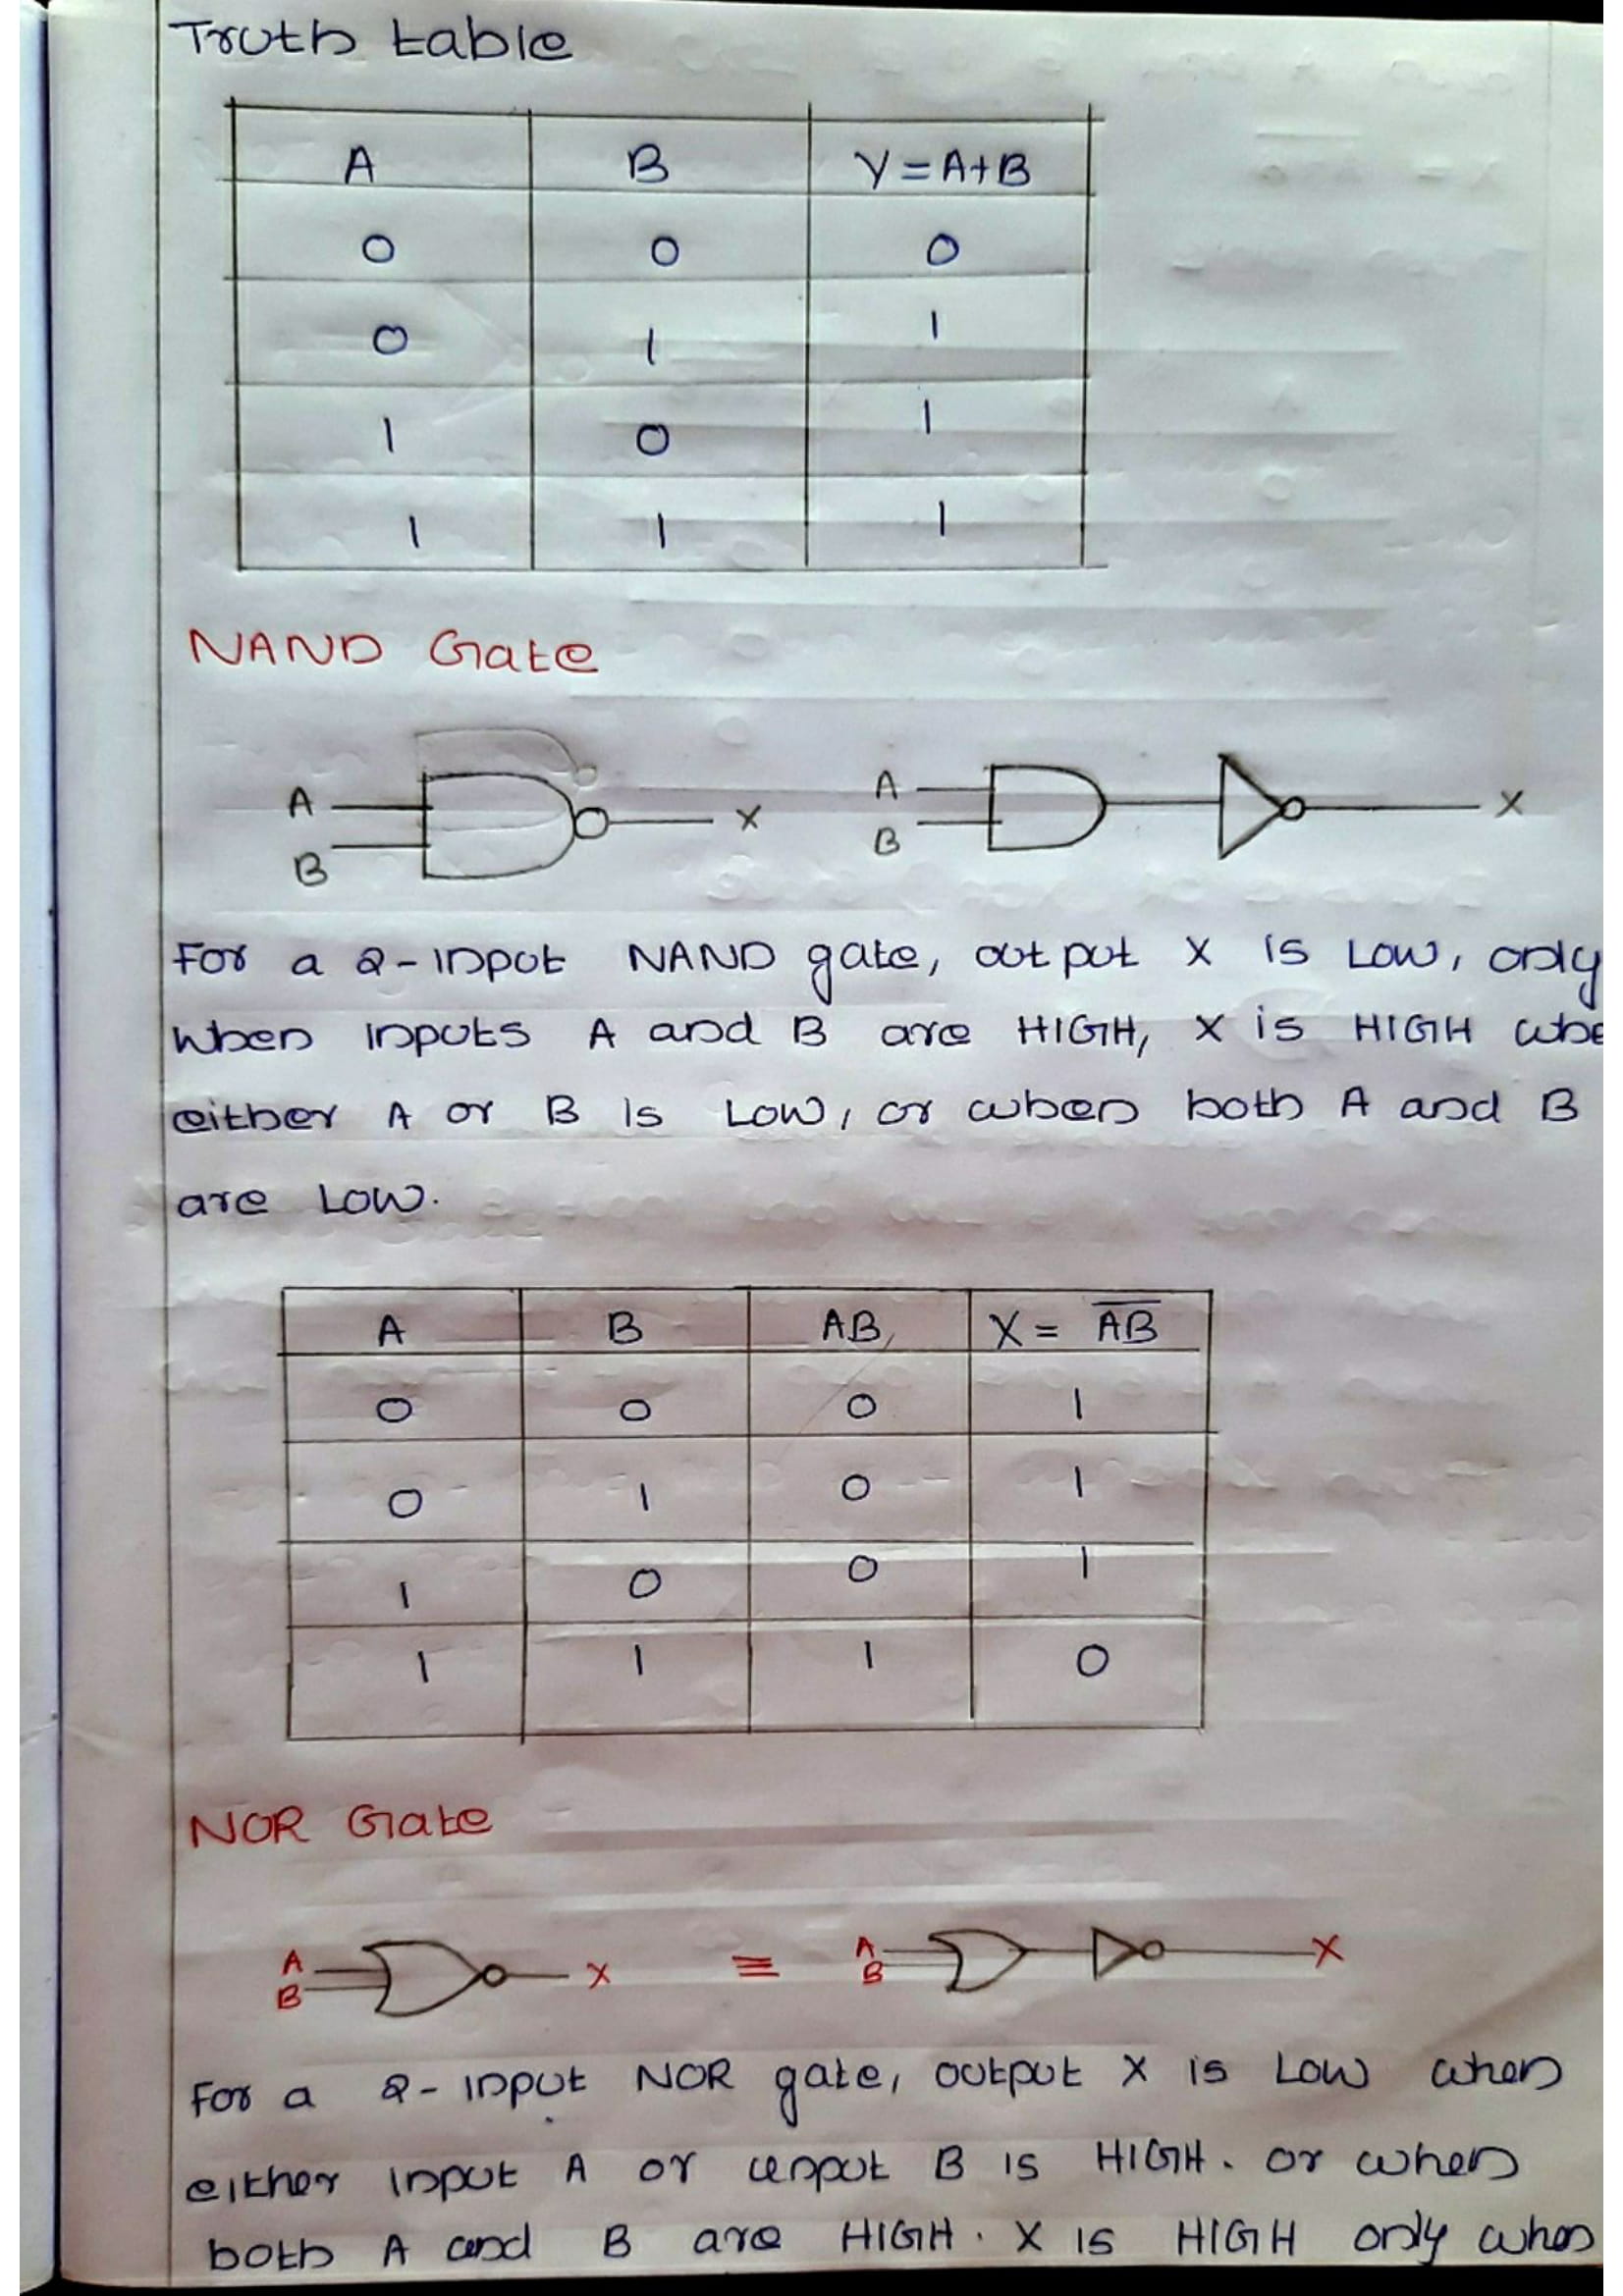 Truth table
A B Y = A+B
0 0 0
0 1 1
1 0 1
1 1 1
NAND Gate
A B X A B X
For a 2-input NAND gate, output X is LOW, only
when inputs A and B are HIGH, X is HIGH whe
either A or B is LOW, or when both A and B
are LOW.
A B AB X = \overline{AB}
0 0 0 1
0 1 0 1
1 0 0 1
1 1 1 0
NOR Gate
A B X ≡ A B X
For a 2-input NOR gate, output X is LOW when
either input A or input B is HIGH. or when
both A and B are HIGH. X is HIGH only when